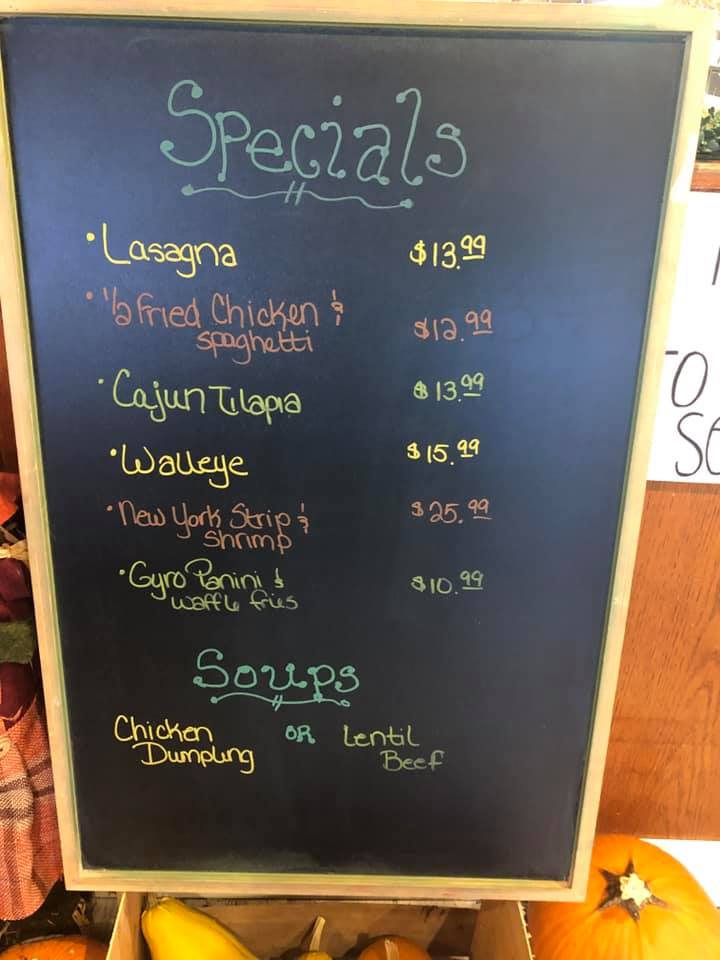 Specials
• Lasagna $13.99
• 1/2 Fried Chicken & $12.99
spaghetti
• Cajun Tilapia $13.99
• Walleye $15.99
• New York Strip & $25.99
Shrimp
• Gyro Panini & $10.99
waffle fries
Soups
Chicken OR Lentil
Dumpling Beef
TO
SE